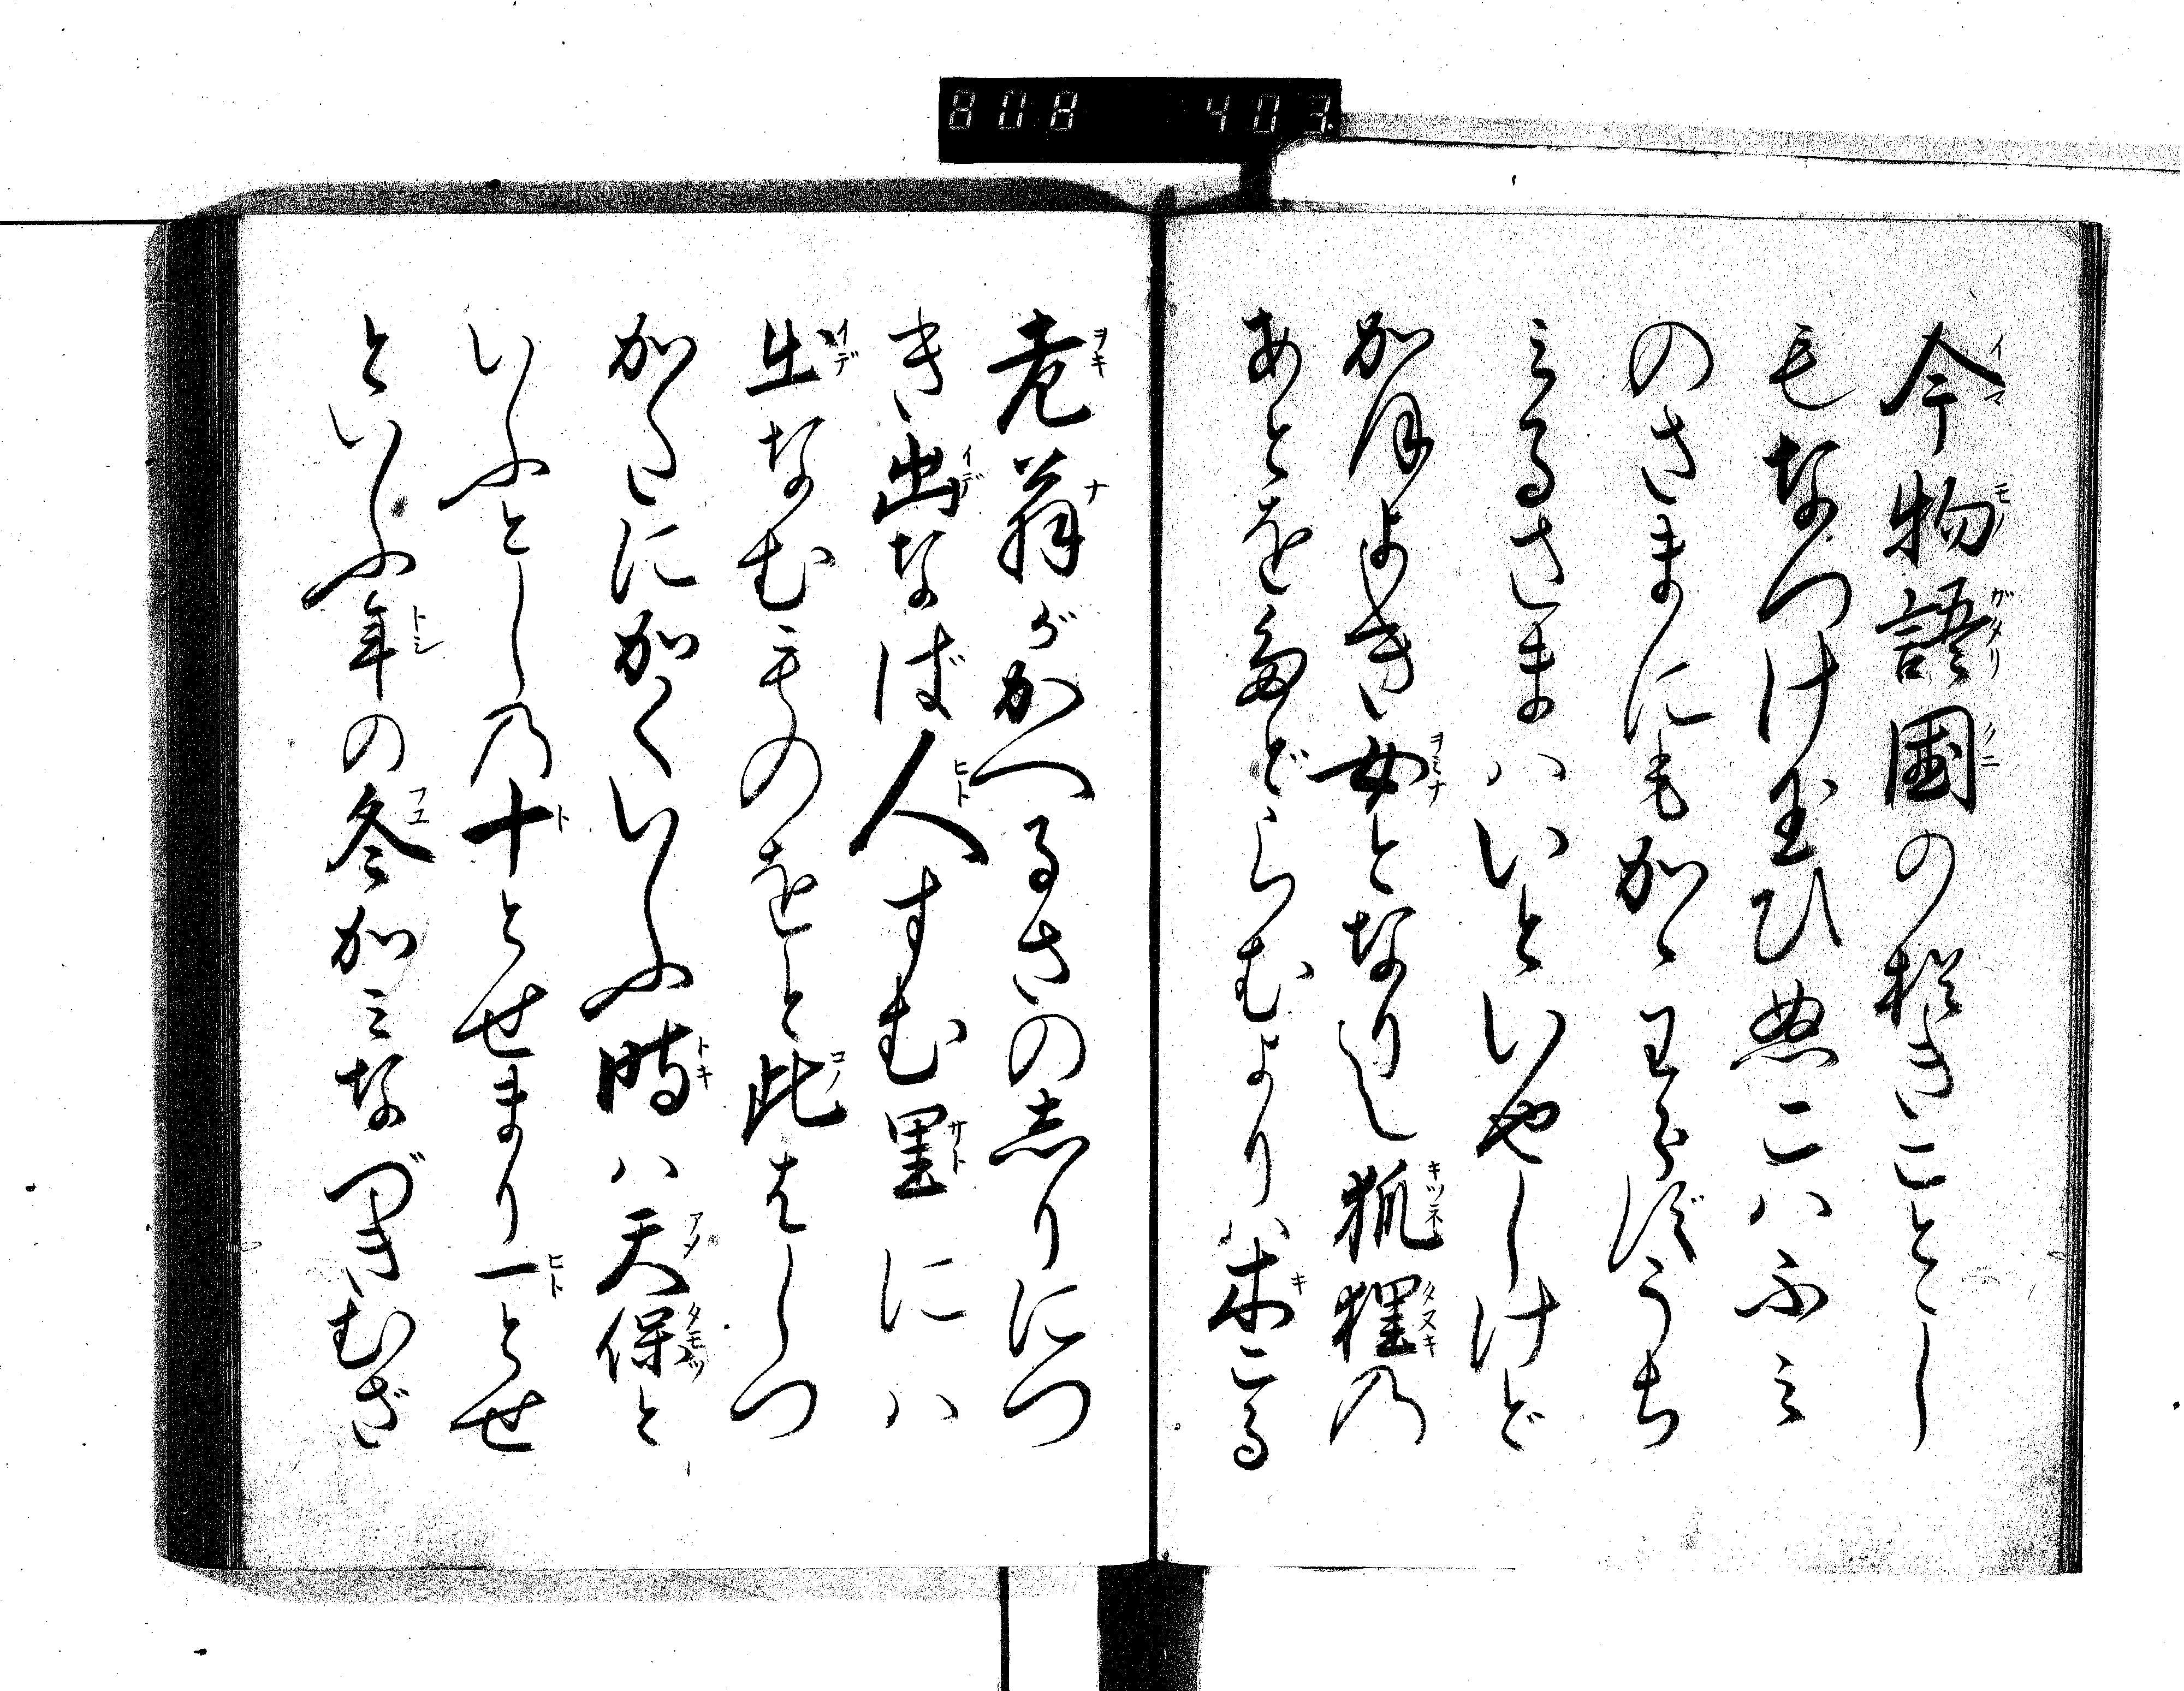 808 403
今物語国の栬きことし
もなつけ玉ひぬこハふミ
のさまにも加ゝわらずうち
ミるさまハいといやしけど
加ほよき女となりし狐狸乃
あとをたどらむよりハ木こる
老翁がかへるさの志りにつ
き出なば人すむ里にハ
出なむものをと此はしつ
加たに加くいふ時ハ天保と
いふとし乃十とせまり一とせ
といふ年の冬加ミなづきむざ